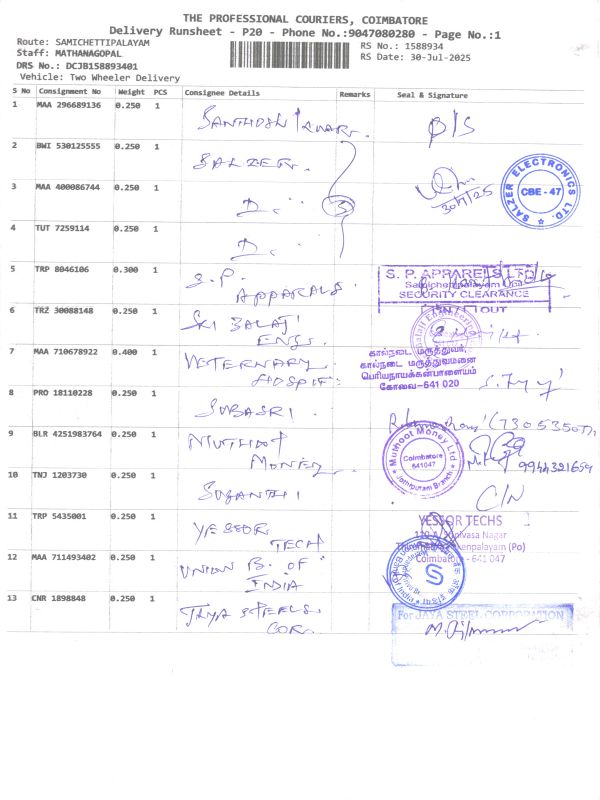 THE PROFESSIONAL COURIERS, COIMBATORE
Delivery Runsheet - P20 - Phone No.:9047080280 - Page No.:1
Route: SAMICHETTIPALAYAM
Staff: MATHANAGOPAL
DRS No.: DCJB158893401
Vehicle: Two Wheeler Delivery
RS No.: 1588934
RS Date: 30-Jul-2025
S No Consignment No Weight PCS Consignee Details Remarks Seal & Signature
1 MAA 296689136 0.250 1
SANTHOSH KUMAR. P/S
2 BWI 530125555 0.250 1
SALZER.
3 MAA 400086744 0.250 1
D. " 3 30/7/25
SALZER ELECTRONICS LTD.
CBE - 47
4 TUT 7259114 0.250 1
D. "
5 TRP 8046106 0.300 1
S.P.
APPARALS.
S. P. APPARELS LTD
Samichettipalayam Unit
SECURITY CLEARANCE
IN / OUT
6 TRZ 30088148 0.250 1
SRI BALAJI
ENGS.
Balaji Engineering
7 MAA 710678922 0.400 1
VETERNARY
HOSPIT:
கால்நடை மருத்துவர்,
கால்நடை மருத்துவமனை
பெரியநாயக்கன்பாளையம்
கோவை-641 020
8 PRO 18110228 0.250 1
SUBASRI.
9 BLR 4251983764 0.250 1
MUTHOOT
MONEY
Muthoot Money Ltd
Coimbatore
641047
Jothipuram Branch
9944321659
10 TNJ 1203730 0.250 1
SUGANTHI C/N
11 TRP 5435001 0.250 1
YESSOR
TECH
YESSOR TECHS
Srinivasa Nagar
(Po)
Coimbatore - 641 047
12 MAA 711493402 0.250 1
UNION B. OF
INDIA
13 CNR 1898848 0.250 1
JAYA STEELS.
COR.
For JAYA STEEL CORPORATION